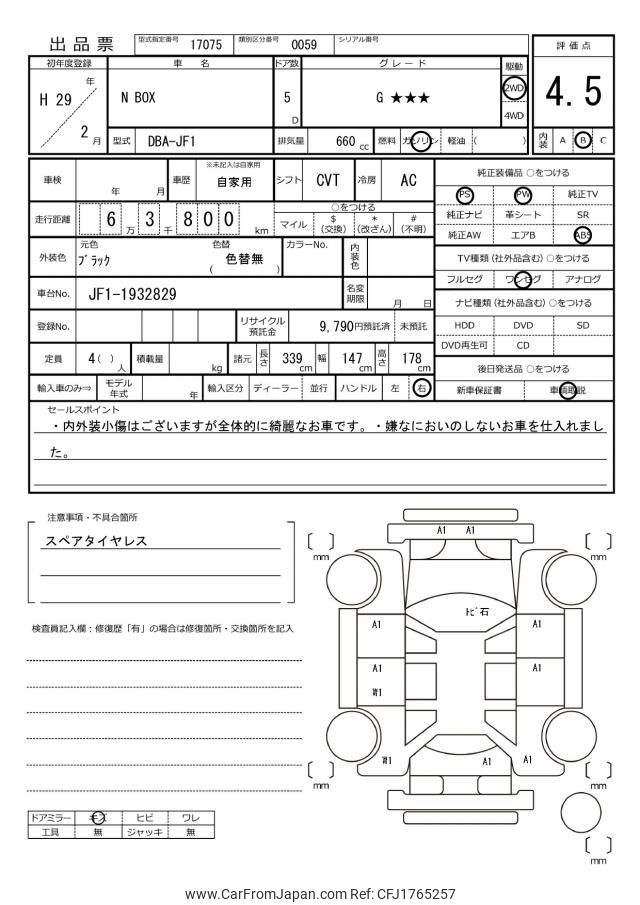 出品票 型式指定番号 17075 類別区分番号 0059 シリアル番号
評価点
4.5
内装 A B C
初年度登録 車名 ドア数 グレード 駆動
H 29 年 2 月 N BOX 5 D G ★★★ 2WD 4WD
型式 DBA-JF1 排気量 660 cc 燃料 ガソリン 軽油 ( )
車検 年 月 車歴 ※未記入は自家用 自家用 シフト CVT 冷房 AC
走行距離 6 3 万 8 千 0 0 km
○をつける
マイル $(交換) *(改ざん) #(不明)
外装色 元色 ブラック 色替 ( 色替無 ) カラーNo. 内装色
車台No. JF1-1932829 名変期限 月 日
登録No. リサイクル預託金 9,790円預託済 未預託
定員 4( )人 積載量 kg 諸元 長さ 339 cm 幅 147 cm 高さ 178 cm
輸入車のみ⇒ モデル年式 年 輸入区分 ディーラー 並行 ハンドル 左 右
純正装備品 ○をつける
PS PW 純正TV
純正ナビ 革シート SR
純正AW エアB ABS
TV種類(社外品含む)○をつける
フルセグ ワンセグ アナログ
ナビ種類(社外品含む)○をつける
HDD DVD SD
DVD再生可 CD
後日発送品 ○をつける
新車保証書 車輌取説
セールスポイント
・内外装小傷はございますが全体的に綺麗なお車です。・嫌なにおいのしないお車を仕入れまし
た。
注意事項・不具合箇所
スペアタイヤレス
検査員記入欄:修復歴「有」の場合は修復箇所・交換箇所を記入
ドアミラー キズ ヒビ ワレ
工具 無 ジャッキ 無
A1 A1
mm mm
トビ石
A1 A1
A1 A1
W1
W1 A1 A1
mm mm
mm
www.CarFromJapan.com Ref: CFJ1765257